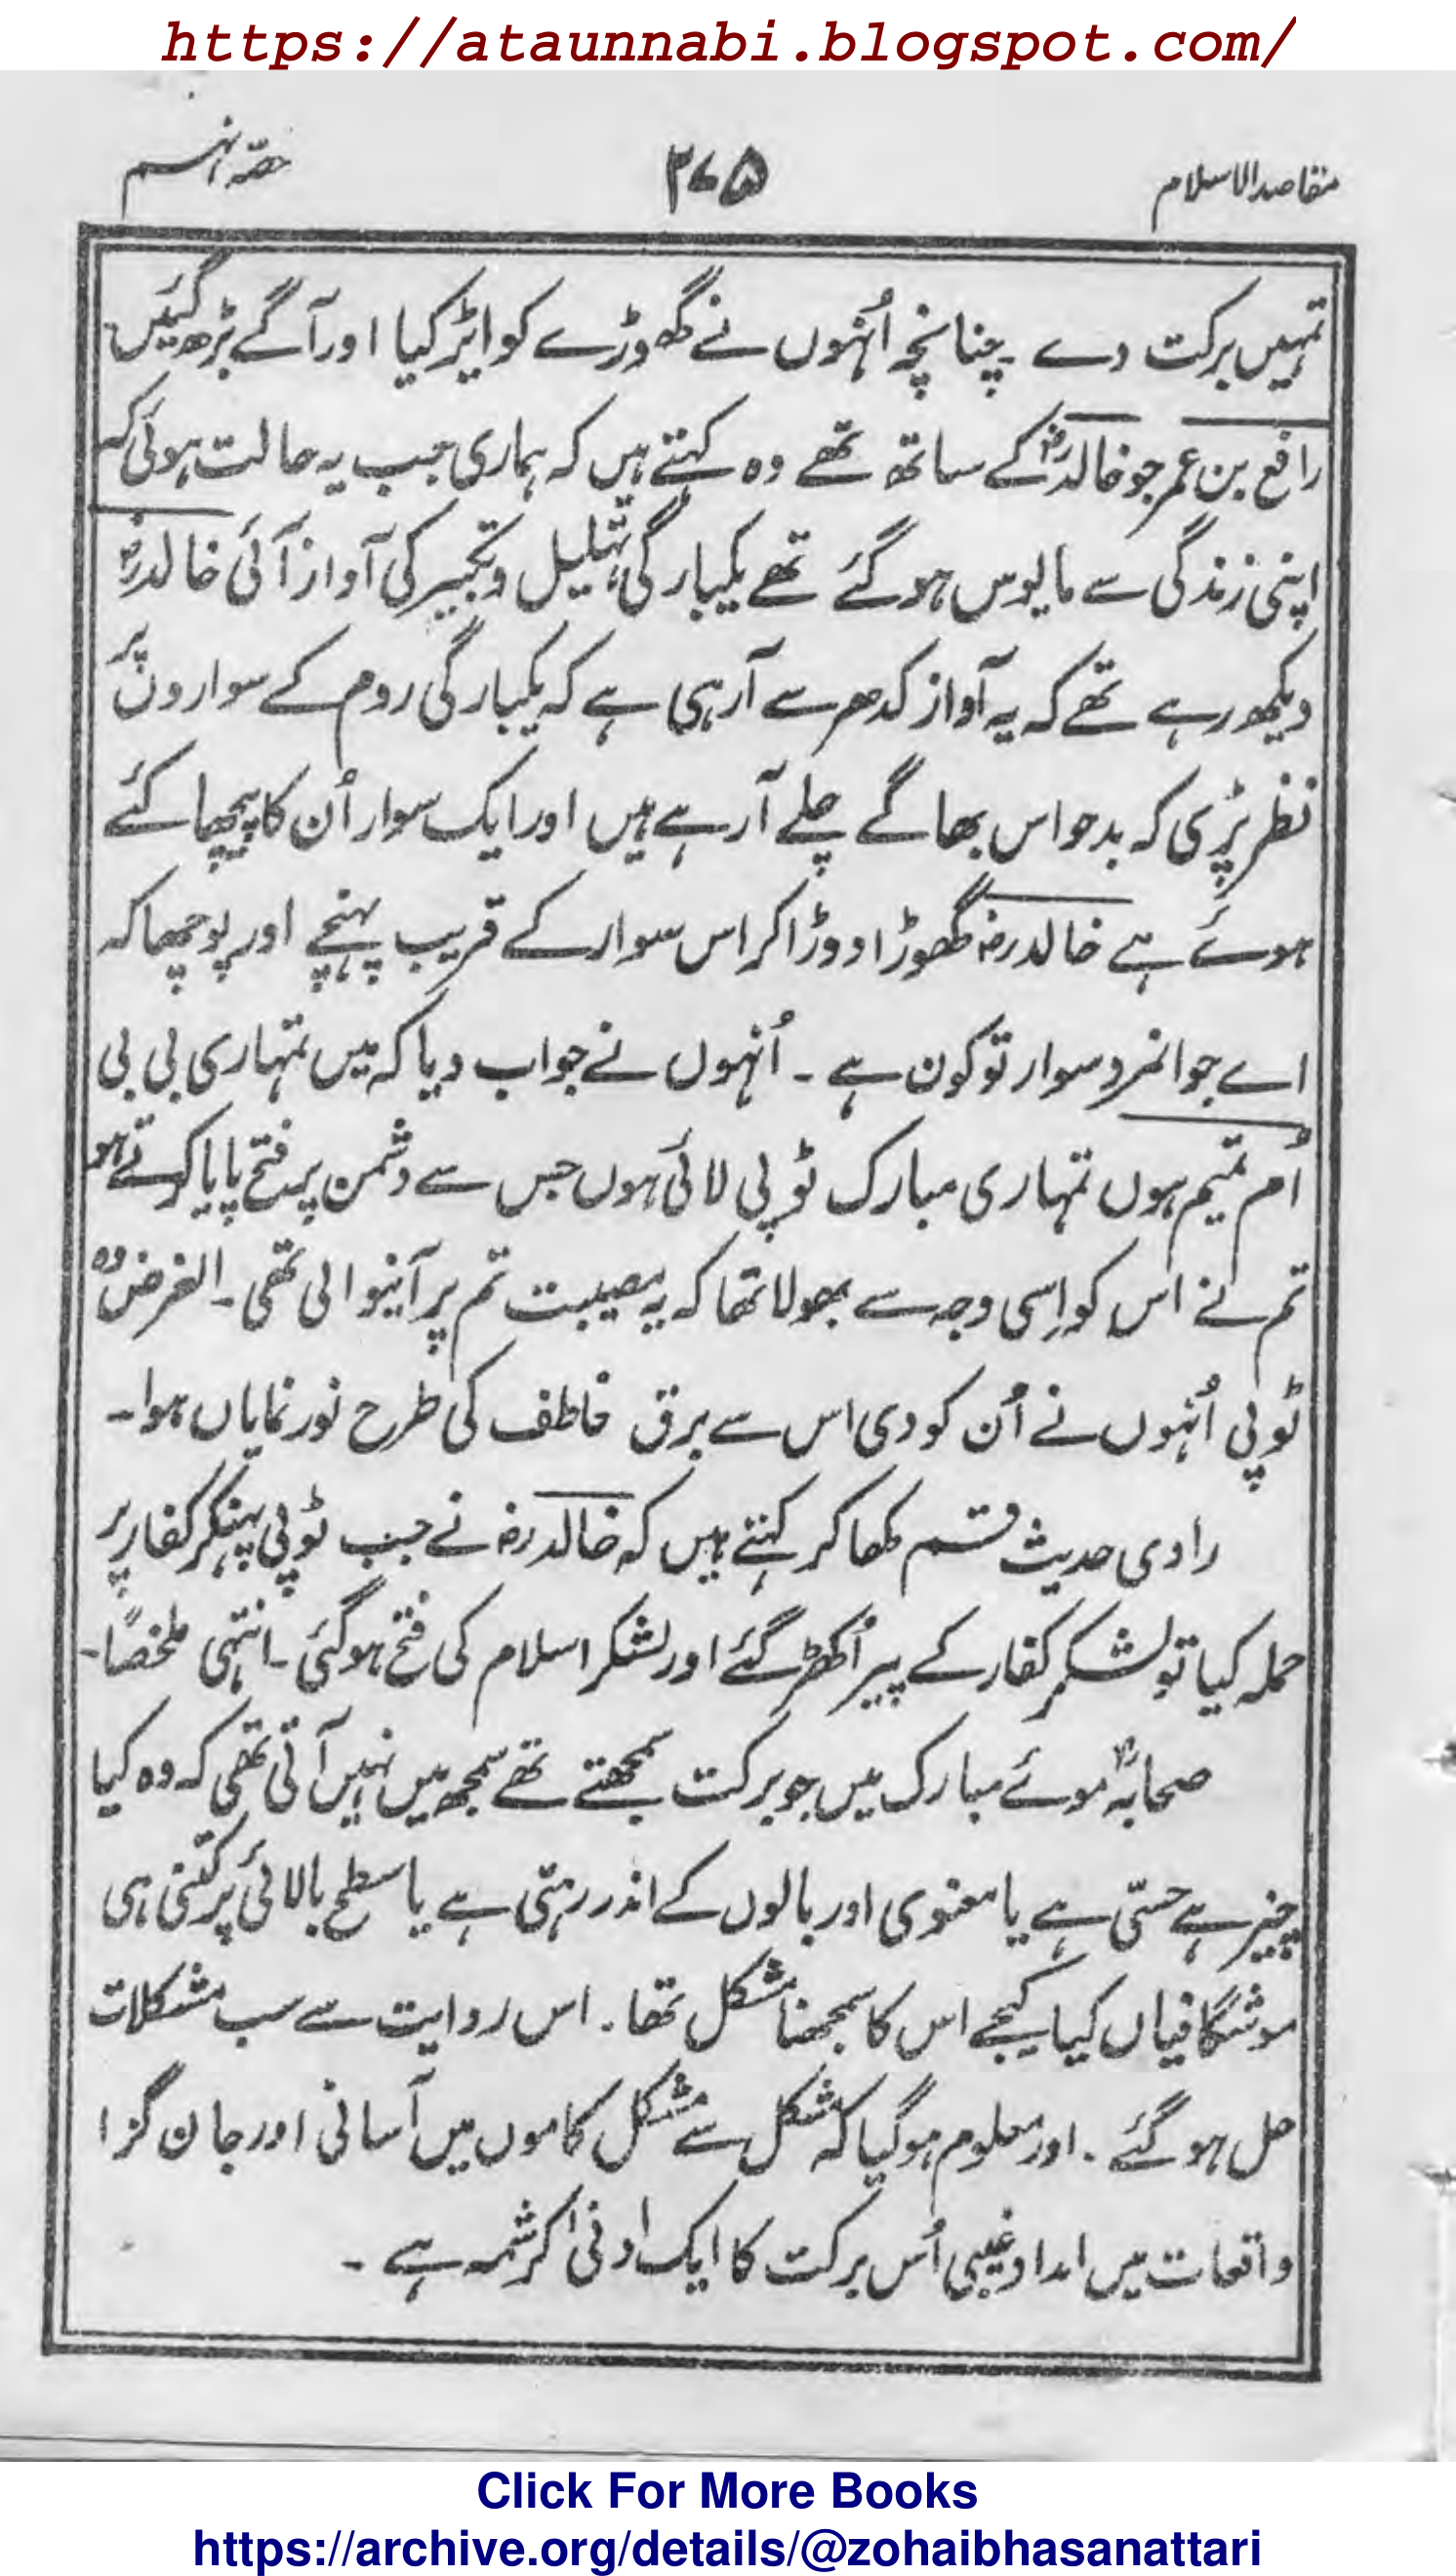 https://ataunnabi.blogspot.com/
مقاصد الاسلام ۲۷۵ حصّہ نہم
تمہیں برکت دے ۔ چنانچہ اُنہوں نے گھوڑے کو ایڑ کیا اور آگے بڑھ گئیں
رافع بن عمر جو خالدرضؓ کے ساتھ تھے وہ کہتے ہیں کہ ہماری جب یہ حالت ہوئی کہ
اپنی زندگی سے مایوس ہوگئے تھے یکبارگی تہلیل و تکبیر کی آواز آئی خالدرضؓ
دیکھ رہے تھے کہ یہ آواز کدھر سے آرہی ہے کہ یکبارگی روم کے سواروں پر
نظر پڑی کہ بدحواس بھاگے چلے آرہے ہیں اور ایک سوار اُن کا پیچھا کئے
ہوئے ہے خالدرضؓ گھوڑا دوڑا کر اس سوار کے قریب پہنچے اور پوچھا کہ
اے جوانمرد سوار تو کون ہے ۔ اُنہوں نے جواب دیا کہ میں تمہاری بی بی
اُم تمیم ہوں تمہاری مبارک ٹوپی لائی ہوں جس سے دشمن پر فتح پایا کرتے ہو
تم نے اس کو اِسی وجہ سے بھولا تھا کہ یہ مصیبت تم پر آنیوالی تھی ۔ الغرض وہ
ٹوپی اُنہوں نے اُن کو دی اس سے برق خاطف کی طرح نور نمایاں ہوا ۔
راوی حدیث قسم کھا کر کہتے ہیں کہ خالدرضؓ نے جب ٹوپی پہنکر کفار پر
حملہ کیا تو لشکر کفار کے پیر اُکھڑ گئے اور لشکر اسلام کی فتح ہوگئی ۔ انتہی ملخصاً ۔
صحابہؓ موئے مبارک میں جو برکت سمجھتے تھے سمجھ میں نہیں آتی تھی کہ وہ کیا
چیز ہے حسّی ہے یا معنوی اور بالوں کے اندر رہتی ہے یا سطح بالائی پر کتنی ہی
موشگافیاں کیا کیجے اس کا سمجھنا مشکل تھا . اس روایت سے سب مشکلات
حل ہوگئے . اور معلوم ہوگیا کہ مشکل سے مشکل کاموں میں آسانی اور جان گزا
واقعات میں امداد غیبی اُس برکت کا ایک ادنیٰ کرشمہ ہے ۔
Click For More Books
https://archive.org/details/@zohaibhasanattari